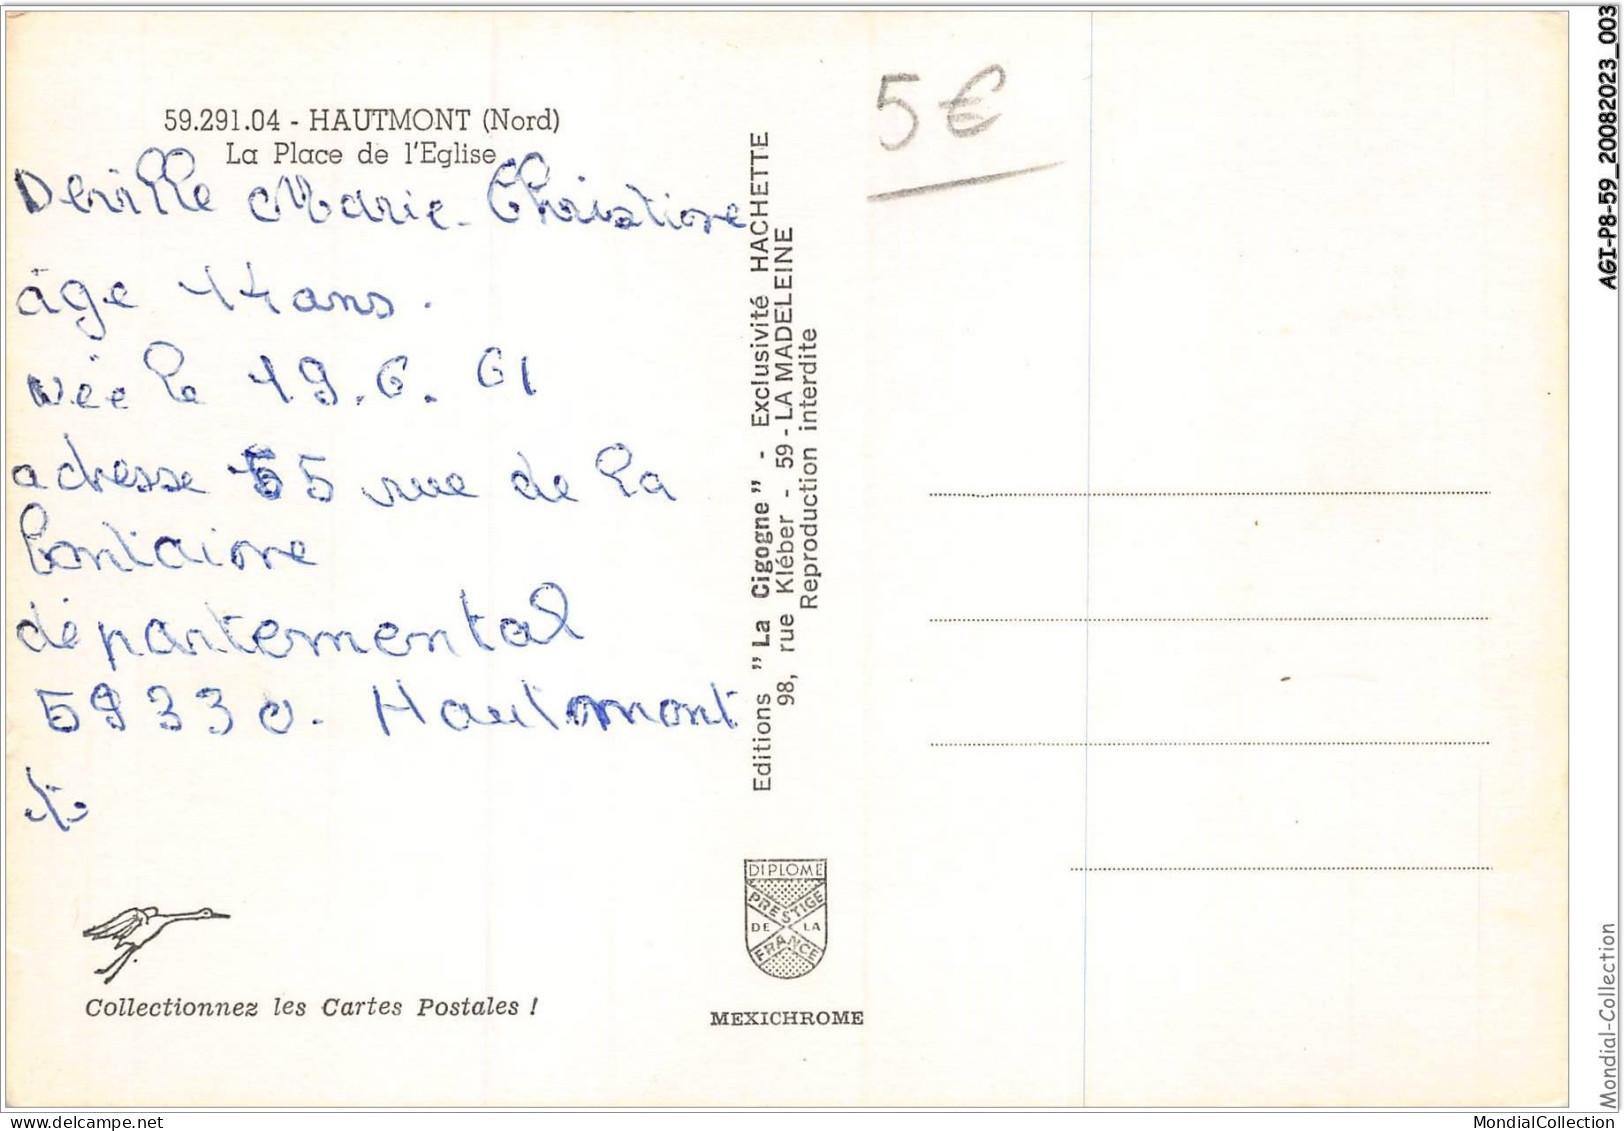 59.291.04 - HAUTMONT (Nord)
La Place de l'Eglise
Deville Marie-Christine
âge 14 ans.
née le 19.6.61
adresse 55 rue de la
fontaine
départemental
59330. Hautmont
5 €
Editions "La Cigogne" - Exclusivité HACHETTE
98, rue Kléber - 59 - LA MADELEINE
Reproduction interdite
DIPLOME
PRESTIGE
DE LA
FRANCE
MEXICHROME
Collectionnez les Cartes Postales !
AGI-P8-59_20082023_003
Mondial-Collection
MondialCollection